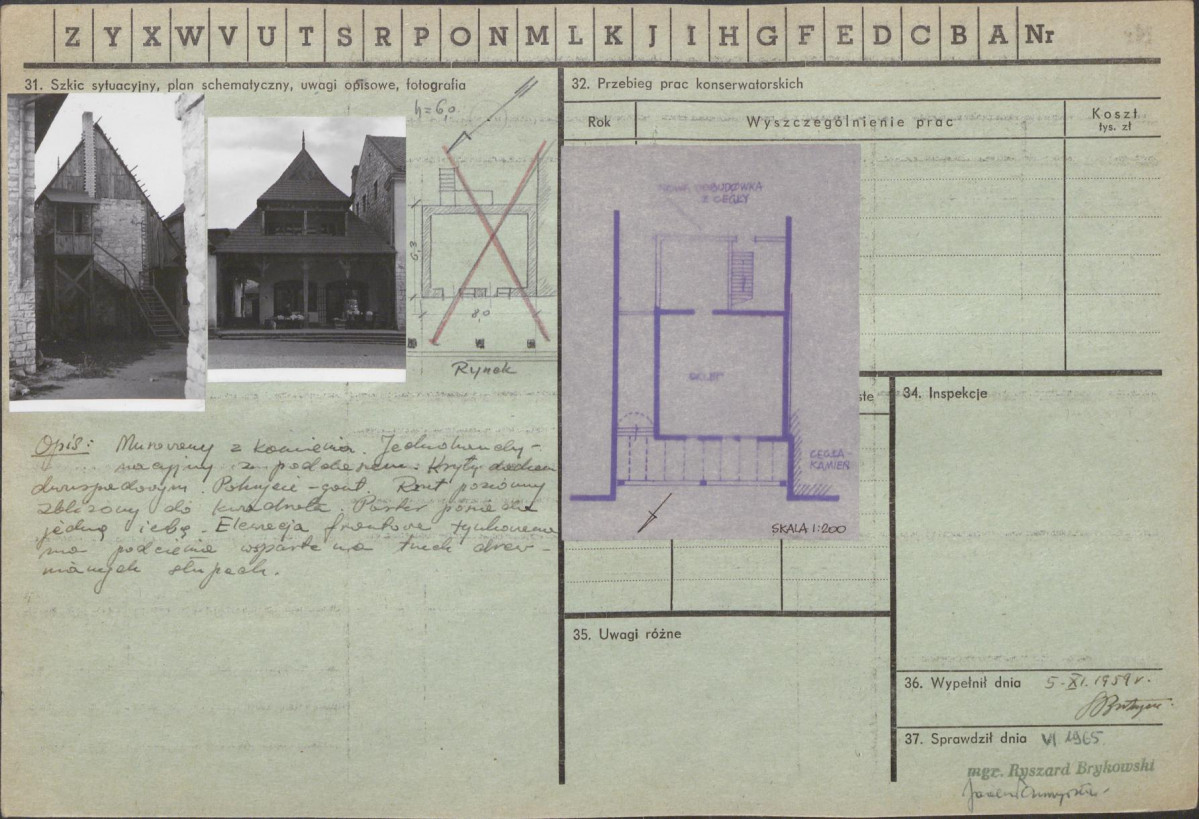 Z Y X W V U T S R P O N M L K J I H G F E D C B A Nr
31. Szkic sytuacyjny, plan schematyczny, uwagi opisowe, fotografia
h=6,0
6,3
8,0
Rynek
Opis: Murowany z kamienia. Jednokondy-
nacyjny z poddaszem. Kryty dachem
dwuspadowym. Pokrycie - gont. Rzut poziomy
zbliżony do kwadratu. Parter posiada
jedną izbę. Elewacja frontowa tynkowana
ma podcienia wsparte na trzech drew-
nianych słupach.
32. Przebieg prac konserwatorskich
Rok
Wyszczególnienie prac
Koszt
tys. zł
NOWA DOBUDÓWKA
Z CEGŁY
SKLEP
CEGŁA-
KAMIEŃ
SKALA 1:200
34. Inspekcje
35. Uwagi różne
36. Wypełnił dnia 5-XI.1959r.
37. Sprawdził dnia VI 1965
mgr. Ryszard Brykowski